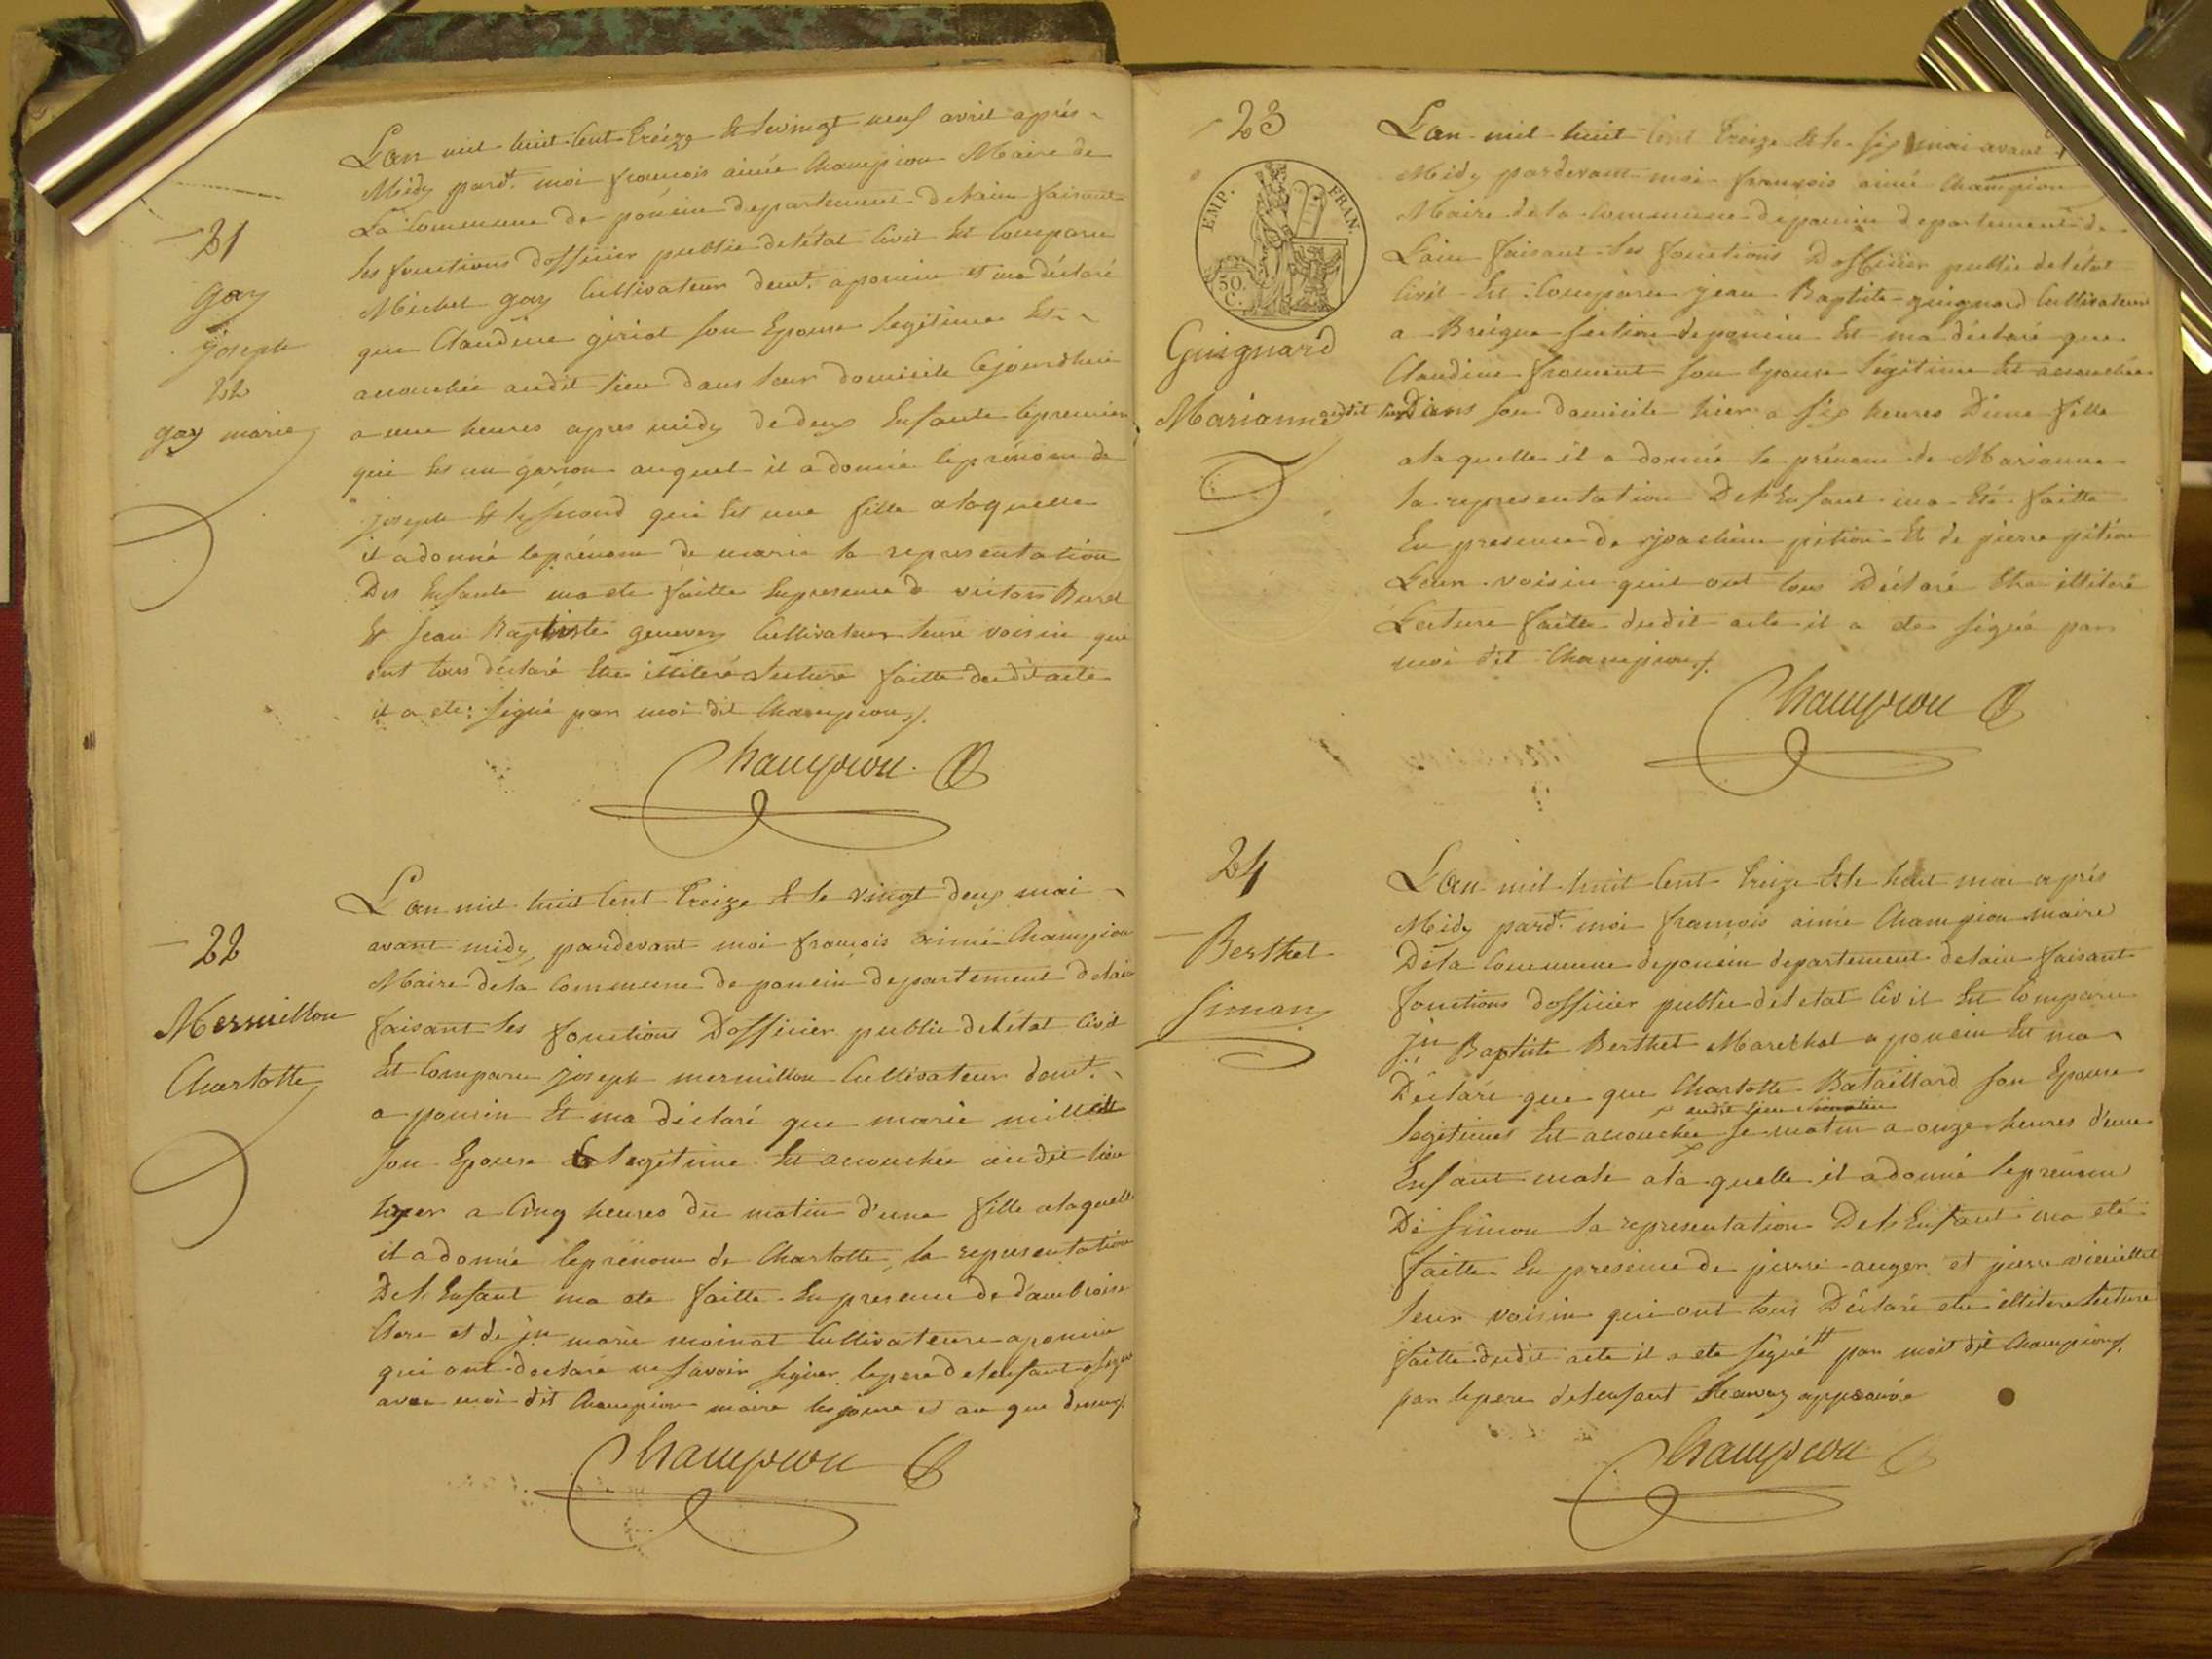 21
gay
joseph
et
gay marie
L'an mil huit Cent treize Et le vingt neuf avril aprés
Midy pardt. moi francois aimé Champion Maire de
La Commune de poncin departement de l'ain faisant
les fonctions d'officier public de l'état Civil Est Comparu
Michel gay Cultivateur demt. a poncin et ma déclaré
que Claudine giriat son Epouse legitime Est
acouchée audit lieu dans leur domicile Cejourdhui
a une heures apres midy de deux Enfants le premier
qui Est un garson auquel il a donné le prénom de
joseph Et le second qui Est une fille a laquelle
il a donné le prénom de marie la representation
Des Enfants ma ete faitte En presence de victor Buret
Et Jean Baptiste genevey Cultivateur leurs voisin qui
ont tous déclaré Etre illiteré Lecture faitte dudit acte
il a ete signé par moi dit Champion
Champion
22
Mermillon
Charlotte
L'an mil huit Cent treize Et le vingt deux mai
avant midy, pardevant moi francois aimé Champion
Maire de la Commune de poncin departement de l'ain
faisant les fonctions D'officier public de l'état Civil
Est Comparu joseph mermillon Cultivateur demt.
a poncin Et ma déclaré que marie millett
son Epouse legitime Est acouchée audit lieu
hyer a Cinq heures du matin d'une fille a laquelle
il a donné le prénom de Charlotte, la representation
De l'Enfant ma ete faitte En presence de d'ambroise
Clere et de jn marie moinat Cultivateurs a poncin
qui ont declaré ne savoir signer, le pere de l'enfant a signé
avec moi dit Champion maire les jour et an que dessus
Champion
23
EMP. FRAN.
50. C.
Guignard
Marianne
L'an mil huit Cent treize Et le six mai avant
Midy pardevant moi francois aimé Champion
Maire de la Commune de poncin departement de
L'ain faisant les fonctions D'officier public de l'état
Civil Est Comparu jean Baptiste guignard Cultivateur
a Breigne section de poncin Et ma déclaré que
Claudine froment son Epouse légitime Est acouchée
audit lieu Dans son domicile hier a six heures D'une fille
a la quelle il a donné le prénom de Marianne
la representation De l'Enfant ma Eté faitte
En presence de joachim pition Et de pierre pition
Leur voisin qui ont tous Déclaré Etre illiteré
Lecture faitte dudit acte il a ete signé par
moi dit Champion
Champion
24
Berthet
Simon
L'an mil huit Cent treize Et le huit mai après
Midy pardt. moi francois aimé Champion maire
De la Commune de poncin departement de l'ain faisant
fonctions d'officier public de l'etat Civil Est Comparu
jn Baptiste Berthet Marechal a poncin Et ma
Déclaré que que Charlotte Bataillard son Epouse
audit lieu
legitimes Est acouchée le matin a onze heures d'une
Enfant male a la quelle il a donné le prénom
De Simon la representation De l'Enfant ma eté
faitte En presence de pierre auger et pierre vieuillet
leur voisin qui ont tous Déclaré etre illitere Lecture
faitte dudit acte il a ete signé par moit dit Champion
par le pere de l'enfant approuvé
Champion